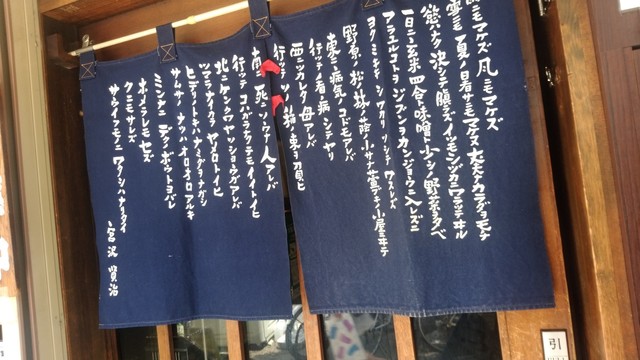 雨ニモマケズ 風ニモマケズ
雪ニモ 夏ノ暑サニモマケヌ 丈夫ナカラダヲモチ
慾ハナク 決シテ瞋ラズ イツモシヅカニワラッテヰル
一日ニ玄米四合ト味噌ト少シノ野菜ヲタベ
アラユルコトヲ ジブンヲカンジョウニ入レズニ
ヨクミキキシ ワカリ ソシテ ワスレズ
野原ノ松ノ林ノ蔭ノ小サナ萱ブキノ小屋ニヰテ
東ニ病気ノコドモアレバ
行ッテ看病シテヤリ
西ニツカレタ母アレバ
行ッテソノ稲ノ束ヲ負ヒ
南ニ死ニソウナ人アレバ
行ッテコハガラナクテモイイトイヒ
北ニケンクヮヤソショウガアレバ
ツマラナイカラヤメロトイヒ
ヒデリノトキハナミダヲナガシ
サムサノナツハオロオロアルキ
ミンナニデクノボウトヨバレ
ホメラレモセズ
クニモサレズ
サウイフモノニ ワタシハナリタイ
宮沢賢治
引